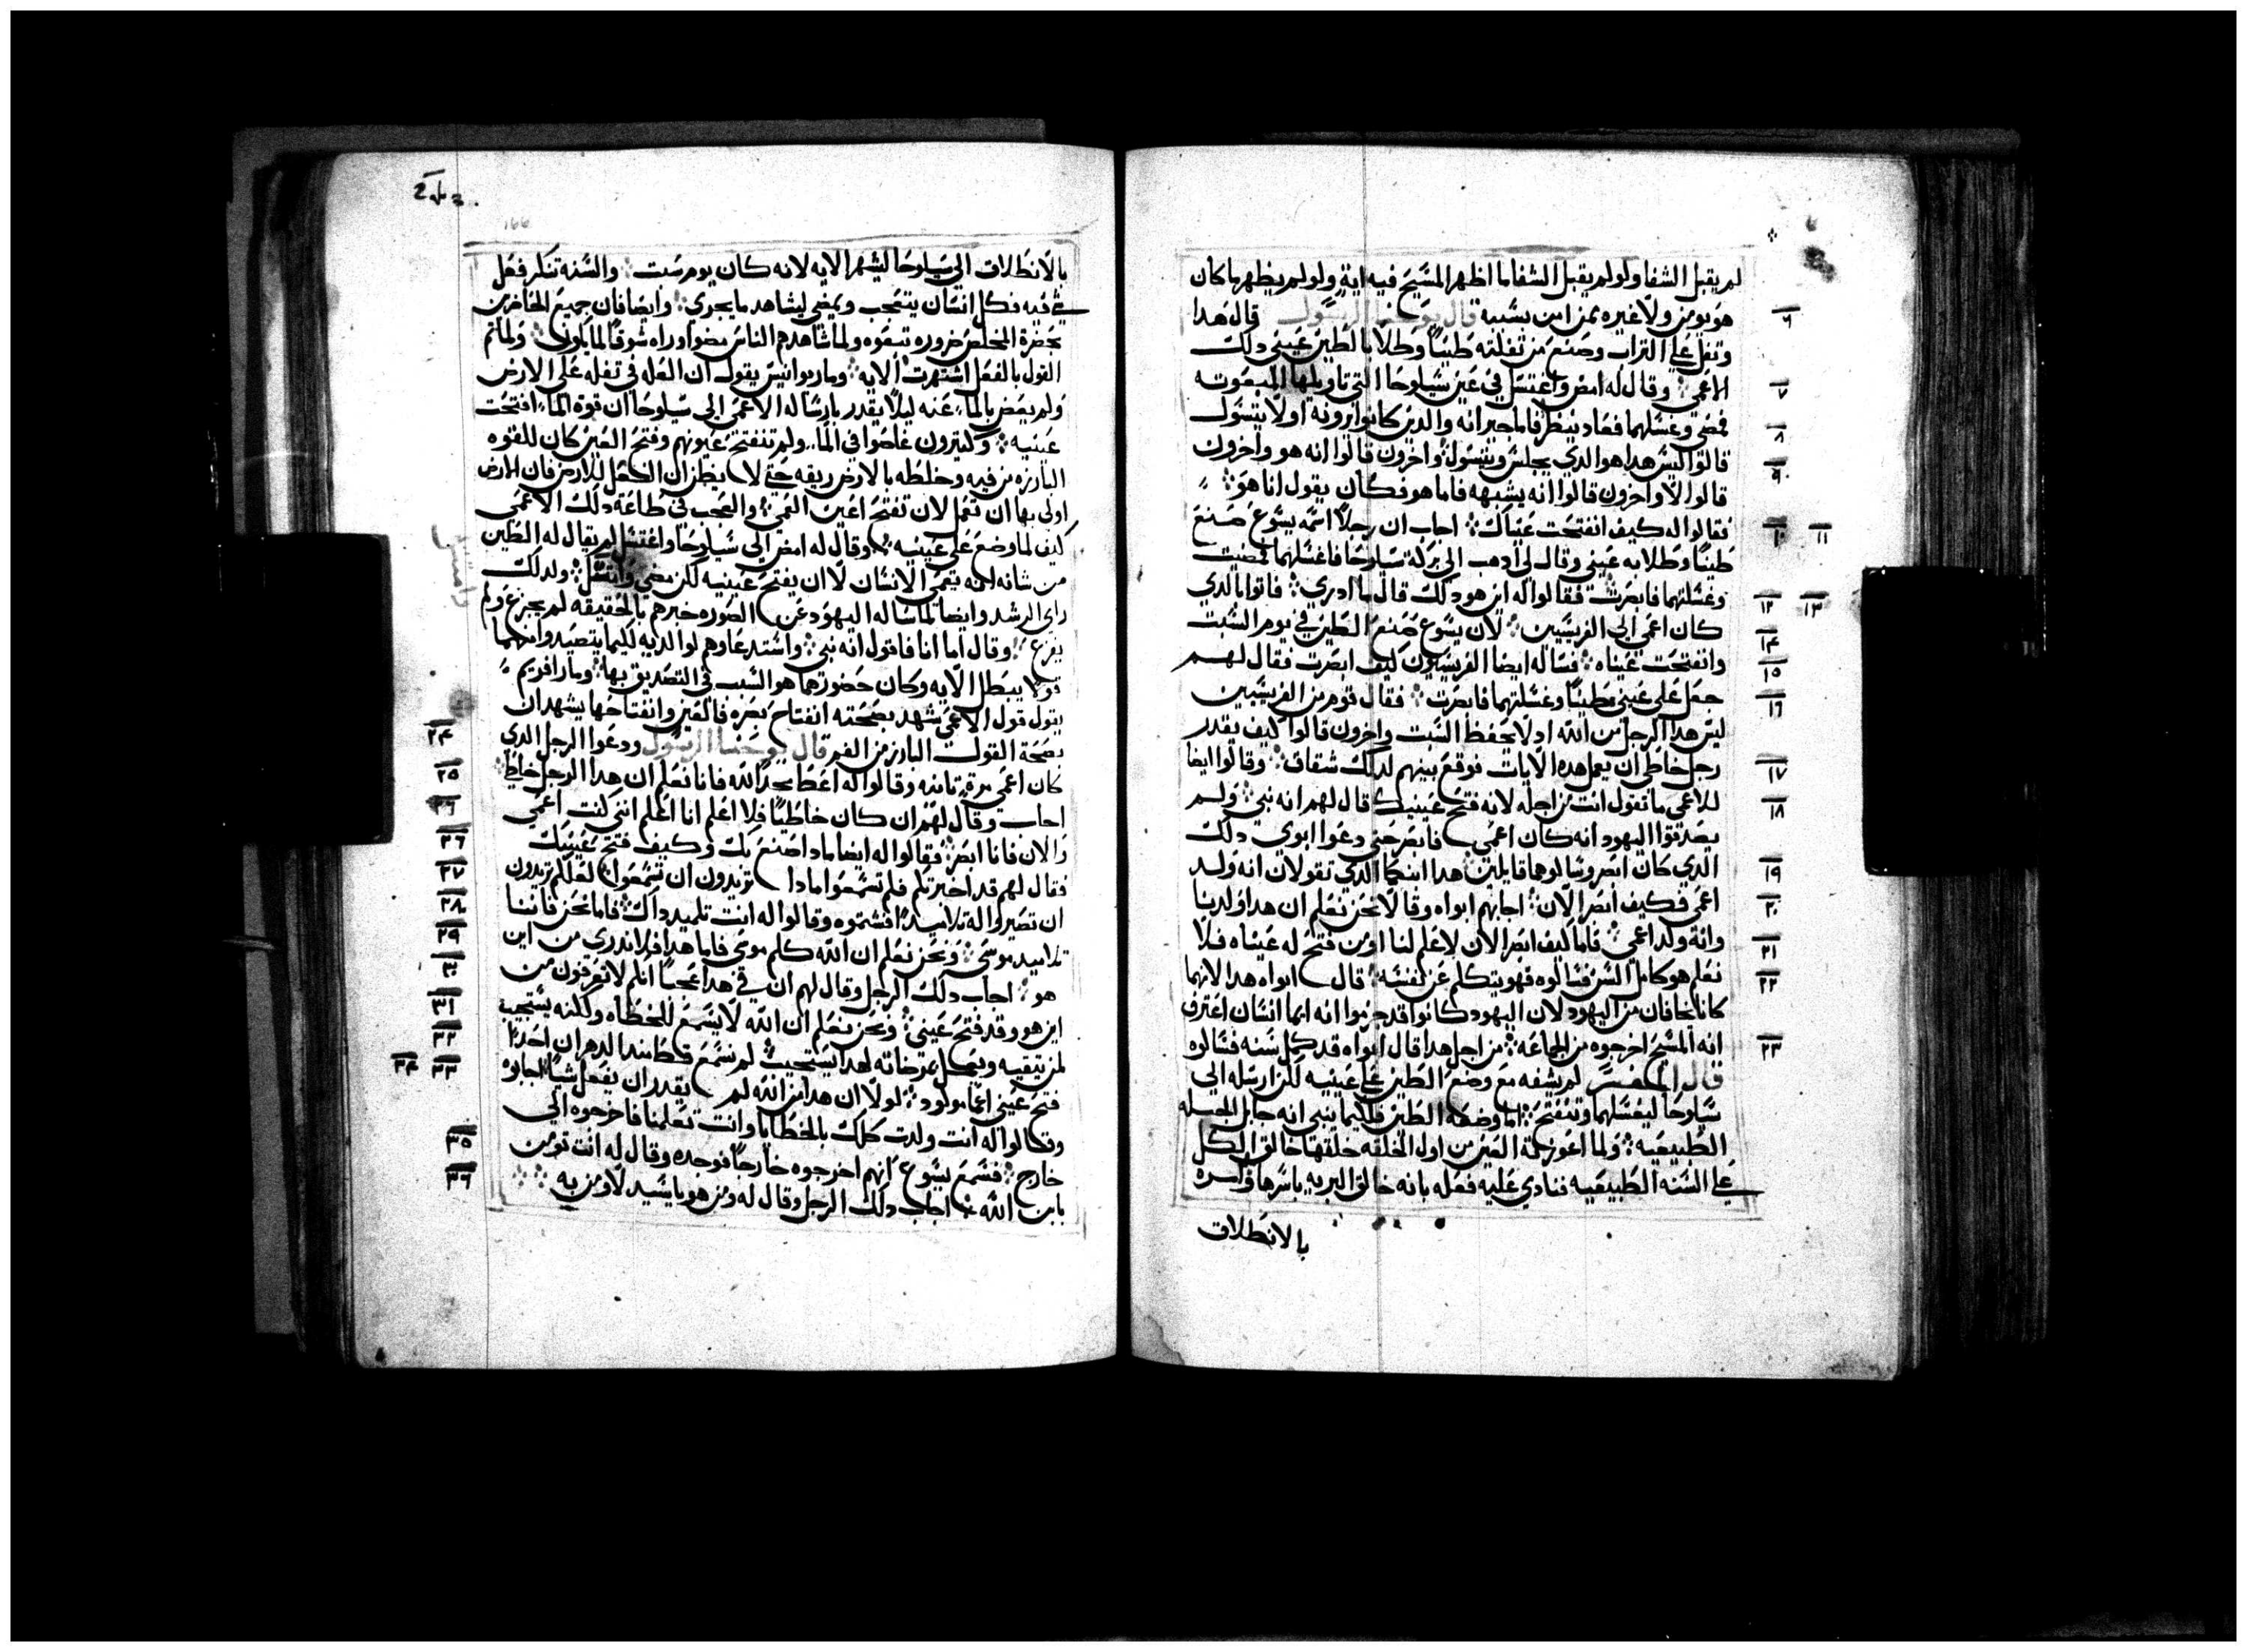 لم يقبل الشفا ولو لم يقبل الشفا ما اظهر المسيح فيه اية ولو لم يظهرها كان
هو يومن ولا غيره بمن امن بسببه قال يوحنا الرسول قال هدا
وتفل علي التراب وصنع من تفلته طينا وطلا بالطين عيني دلك
الاعمي وقال له امض واغتسل في عين شيلوحا التي تاويلها المبعوته
فمضي وغسلهما فعاد ينظر فاما جيرانه والدين كانوا يرونه اولا يتسول
قالوا اليس هدا هو الدي يجلس ويتسول واخرون قالوا انه هو واخرون
قالوا لا واخرون قالوا انه يشبهه فاما هو فكان يقول انا هو
فقالوا له كيف انفتحت عيناك اجاب ان رجلا اسمه يسوع صنع
طينا وطلا به عيني وقال لي ادهب الي بركة سيلوحا فاغسلهما فمضيت
وغسلتهما فابصرت فقالوا له اين هو دلك قال ما ادري فاتوا بالدي
كان اعمي الي الفريسيين لان يسوع صنع الطين في يوم السبت
وانفتحت عيناه فساله ايضا الفريسيون كيف ابصرت فقال لهم
جعل علي عيني طينا وغسلتهما فابصرت فقال قوم من الفريسيين
ليس هدا الرجل من الله اد لا يحفظ السبت واخرون قالوا كيف يقدر
رجل خاطي ان يعمل هده الايات فوقع بينهم لدلك شقاق وقالوا ايضا
للاعمي ما تقول انت من اجله لانه فتح عينيك قال لهم انه نبي ولم
يصدقوا اليهود انه كان اعمي فابصر حتي دعوا ابوي دلك
الدي كان ابصر وسالوهما قايلين هدا ابنكما الدي تقولان انه ولد
اعمي فكيف ابصر الان اجابهم ابواه وقالا نحن نعلم ان هدا ولدنا
وانه ولد اعمي فاما كيف ابصر الان لا علم لنا او من فتح له عيناه فلا
نعلم هو كامل السن فسالوه فهو يتكلم عن نفسه قال ابواه هدا لانهما
كانا يخافان من اليهود لان اليهود كانوا قد جزموا انه ايما انسان اعترف
انه المسيح اخرجوه من الجماعه من اجل هدا قال ابواه قد كمل سنه فسالوه
قال المفسر لم يشفه مع وضع الطين علي عينيه لكن ارسله الي
سيلوحا ليغسلهما وتنفتح اما وضعه الطين فلكيما يبين انه جابل الجبله
الطبيعيه ولما اعوزهمة العين من اول الخلقه خلقها خالق الكل
علي السنه الطبيعيه فنادي عليه فعله بانه خالق البريه باسرها وامره
بالانطلاق
166
بالانطلاق الي سيلوحا ليشهر الايه لانه كان يوم سبت والسنه تنكر فعل
شي فيه فكل انسان يتعجب ويمضي ليشاهد ما يجري وايضا فان جميع الحاضرين
بحضرة المخلص ضروره تبعوه ولما شاهدهم الناس مضوا وراه شوقا لما يكون ولما تم
القول بالفعل اشتهرت الايه وماريوانيس يقول ان العله في تفله علي الارض
ولم يعض بالماء عنه ليلا يقدر بارساله الاعمي الي سيلوحا ان قوة الماء افتحت
عينيه وكثيرون غاصوا في الماء ولم تنفتح عيونهم وفتح العين كان للقوه
البارزه من فيه وخلطه بالارض ريقه حتي لا يظن ان الفعل للارض فان الارض
اولي بها ان تعمل لان تفتح اعين العمي والعجب في طاعة دلك الاعمي
كيف لما وضع علي عينيه وقال له امض الي سيلوحا واغتسل لم يقال له الطين
من شانه انه يعمي الانسان لا ان يفتح عينيه لكن مضي واغتسل ولدلك
راي الرشد وايضا لما ساله اليهود عن الصوره خبرهم بالحقيقه لم يجزع ولم
يفزع وقال اما انا فاقول انه نبي واستدعاوهم لوالديه لكيما يتصيدوا منهما
قولا يبطل الايه وكان حضورهما هو السبب في التصديق بها ومار افريم
يقول قول الاعمي شهد بصحته انفتاح بصره فالعين وانفتاحها يشهدان
بصحة القول البارز من الفم قال يوحنا الرسول ودعوا الرجل الدي
كان اعمي مرة تانيه وقالوا له اعط مجدا لله فانا نعلم ان هدا الرجل خاطي
اجاب وقال لهم ان كان خاطيا فلا اعلم انا اعلم انني كنت اعمي
والان فانا ابصر فقالوا له ايضا مادا صنع بك وكيف فتح عينيك
فقال لهم قد اخبرتكم فلم تسمعوا مادا تريدون ان تسمعوا لعلكم تريدون
ان تصيروا له تلاميدا فشتموه وقالوا له انت تلميد داك فاما نحن فاننا
تلاميد موسي ونحن نعلم ان الله كلم موسي فاما هدا فلا ندري من اين
هو اجاب دلك الرجل وقال لهم ان في هدا عجبا انكم لا تعرفون من
اين هو وقد فتح عيني ونحن نعلم ان الله لا يسمع للخطاه ولكنه يستجيب
لمن يتقيه ويعمل بمرضاته لهدا يستجيب لم نسمع قط مند الدهر ان احدا
فتح عيني اعمي مولود لولا ان هدا من الله لم يقدر ان يفعل شيا اجابوه
وقالوا له انت ولدت كلك بالخطايا وانت تعلمنا فاخرجوه الي
خارج فسمع يسوع انهم اخرجوه خارجا فوجده وقال له انت تومن
بابن الله اجاب دلك الرجل وقال له ومن هو يا سيد لاومن به